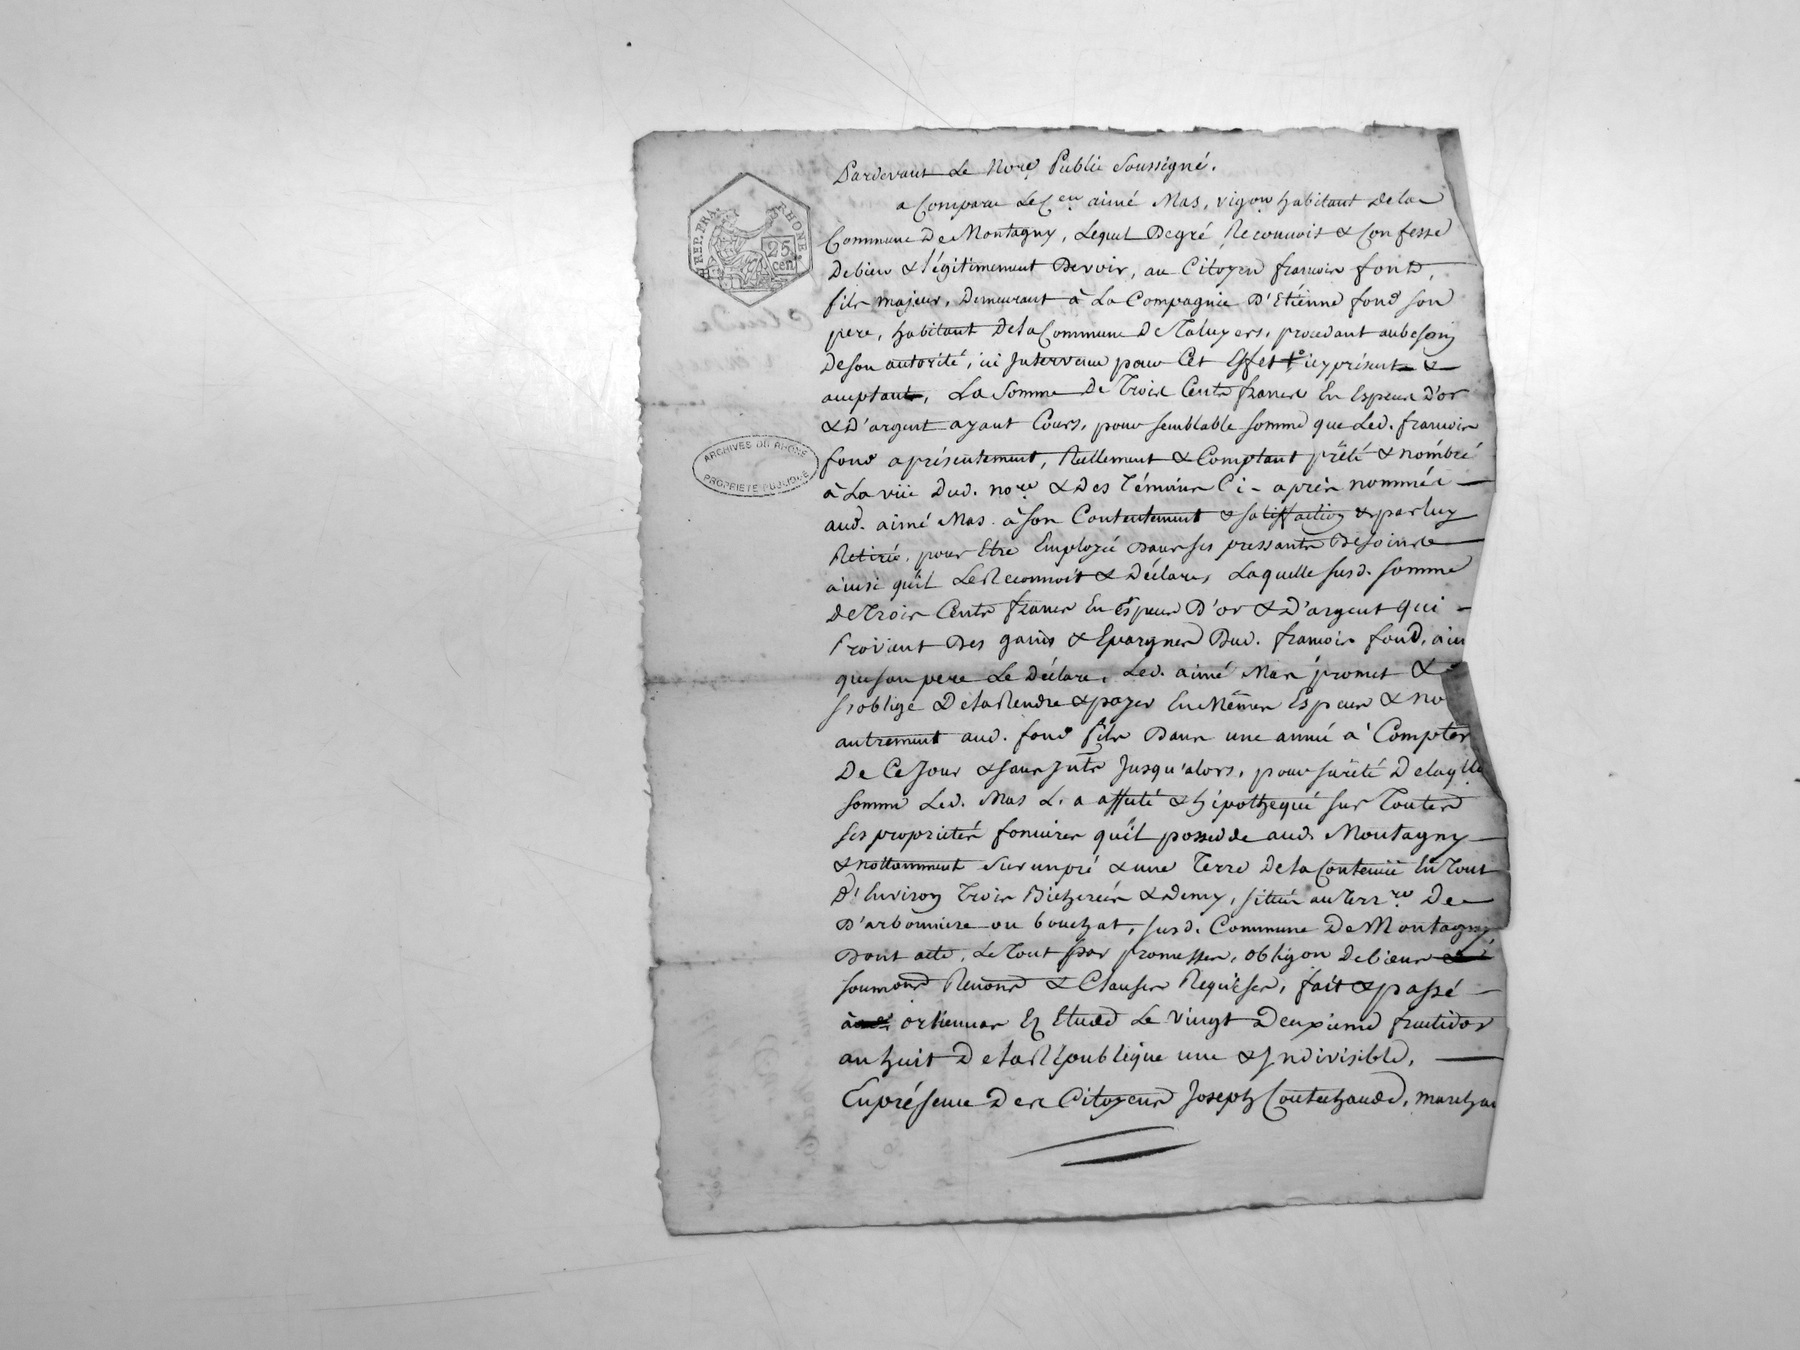 Pardevant Le Nore Public Soussigné.
a Comparu Le Cen aimé Mas, vigon habitant de la
Commune De Montagny, Lequel De gré Reconnoit & Confesse
De bien & légitimement Devoir, au Citoyen françois fond,
fils majeur, Demeurant à La Compagnie D'Etienne fond son
pere, habitant De la Commune De Taluyers, procedant au besoin
De son autorité, ici Intervenu pour Cet Effet icy présent &
acceptant, La Somme De Trois Cents francs En Espèces D'or
& D'argent ayant Cours, pour semblable somme que Led. françois
fond a présentement, Réellement & Comptant prêté & nombré
à La vüe Dud. nore & Des Témoins Ci-après nommés
aud. aimé Mas à Son Contentement & satisffaction & par luy
Retiré, pour Etre Employé Dans ses pressants Besoins
ainsi qu'il Le Reconnoit & Déclare, Laquelle susd. somme
De Trois Cents francs En Espèces D'or & D'argent qui
Provient Des gains & Epargnes Dud. françois fond, ain
que son pere Le Déclare, Led. aimé Mas promet &
s'oblige De la Rendre & payer En Mêmes Espèces & no
autrement aud. fond fils Dans une année à Compter
De Ce Jour & sans Intts Jusqu'alors, pour sûreté De laqlle
somme Led. Mas L. a affecté & hipothequé sur Toutes
ses propriétés foncières qu'il possedde aud. Montagny
& nottamment sur un pré & une Terre De la Contenüe En Tout
D'Environ Trois Bicherées & Demy, situés au Terr.re De
D'arbonniere ou bouchat, susd. Commune De Montagny
Dont acte, Le Tout par promesses, obligon De biens
soumons Renons & Clauses Requises, fait & passé
à orlienas Ez Etude Le vingt Deuxieme fructidor
an huit De la République une & Indivisible,
En présence Des Citoyens Joseph Coutechaude, marchan
REP. FRA.
RHONE
25 cent.
ARCHIVES DU RHONE
PROPRIETE PUBLIQUE